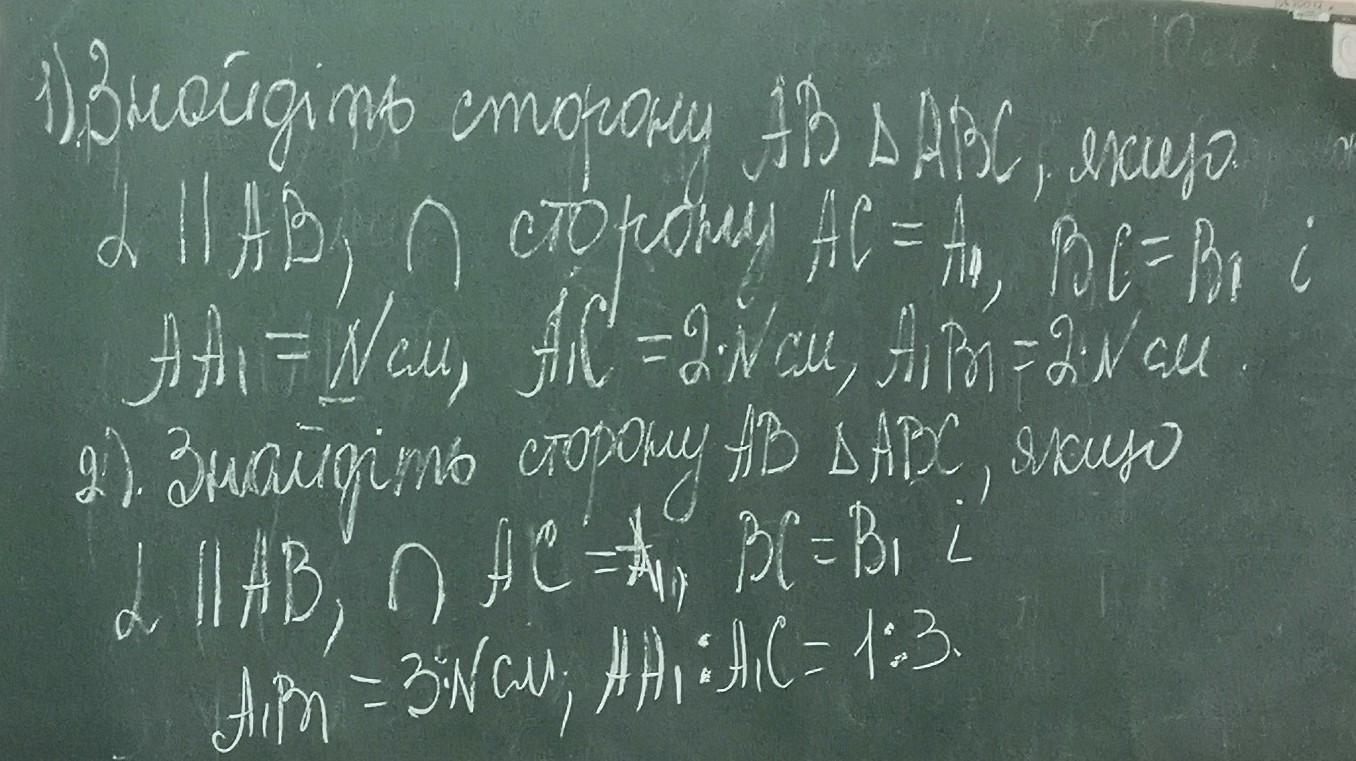 1). Знайдіть сторону AB ΔABC, якщо
α || AB, ∩ сторону AC = A₁, BC = B₁ і
AA₁ = N см, A₁C = 2·N см, A₁B₁ = 2·N см.
2). Знайдіть сторону AB ΔABC, якщо
α || AB, ∩ AC = A₁, BC = B₁ і
A₁B₁ = 3·N см; AA₁ : A₁C = 1:3.